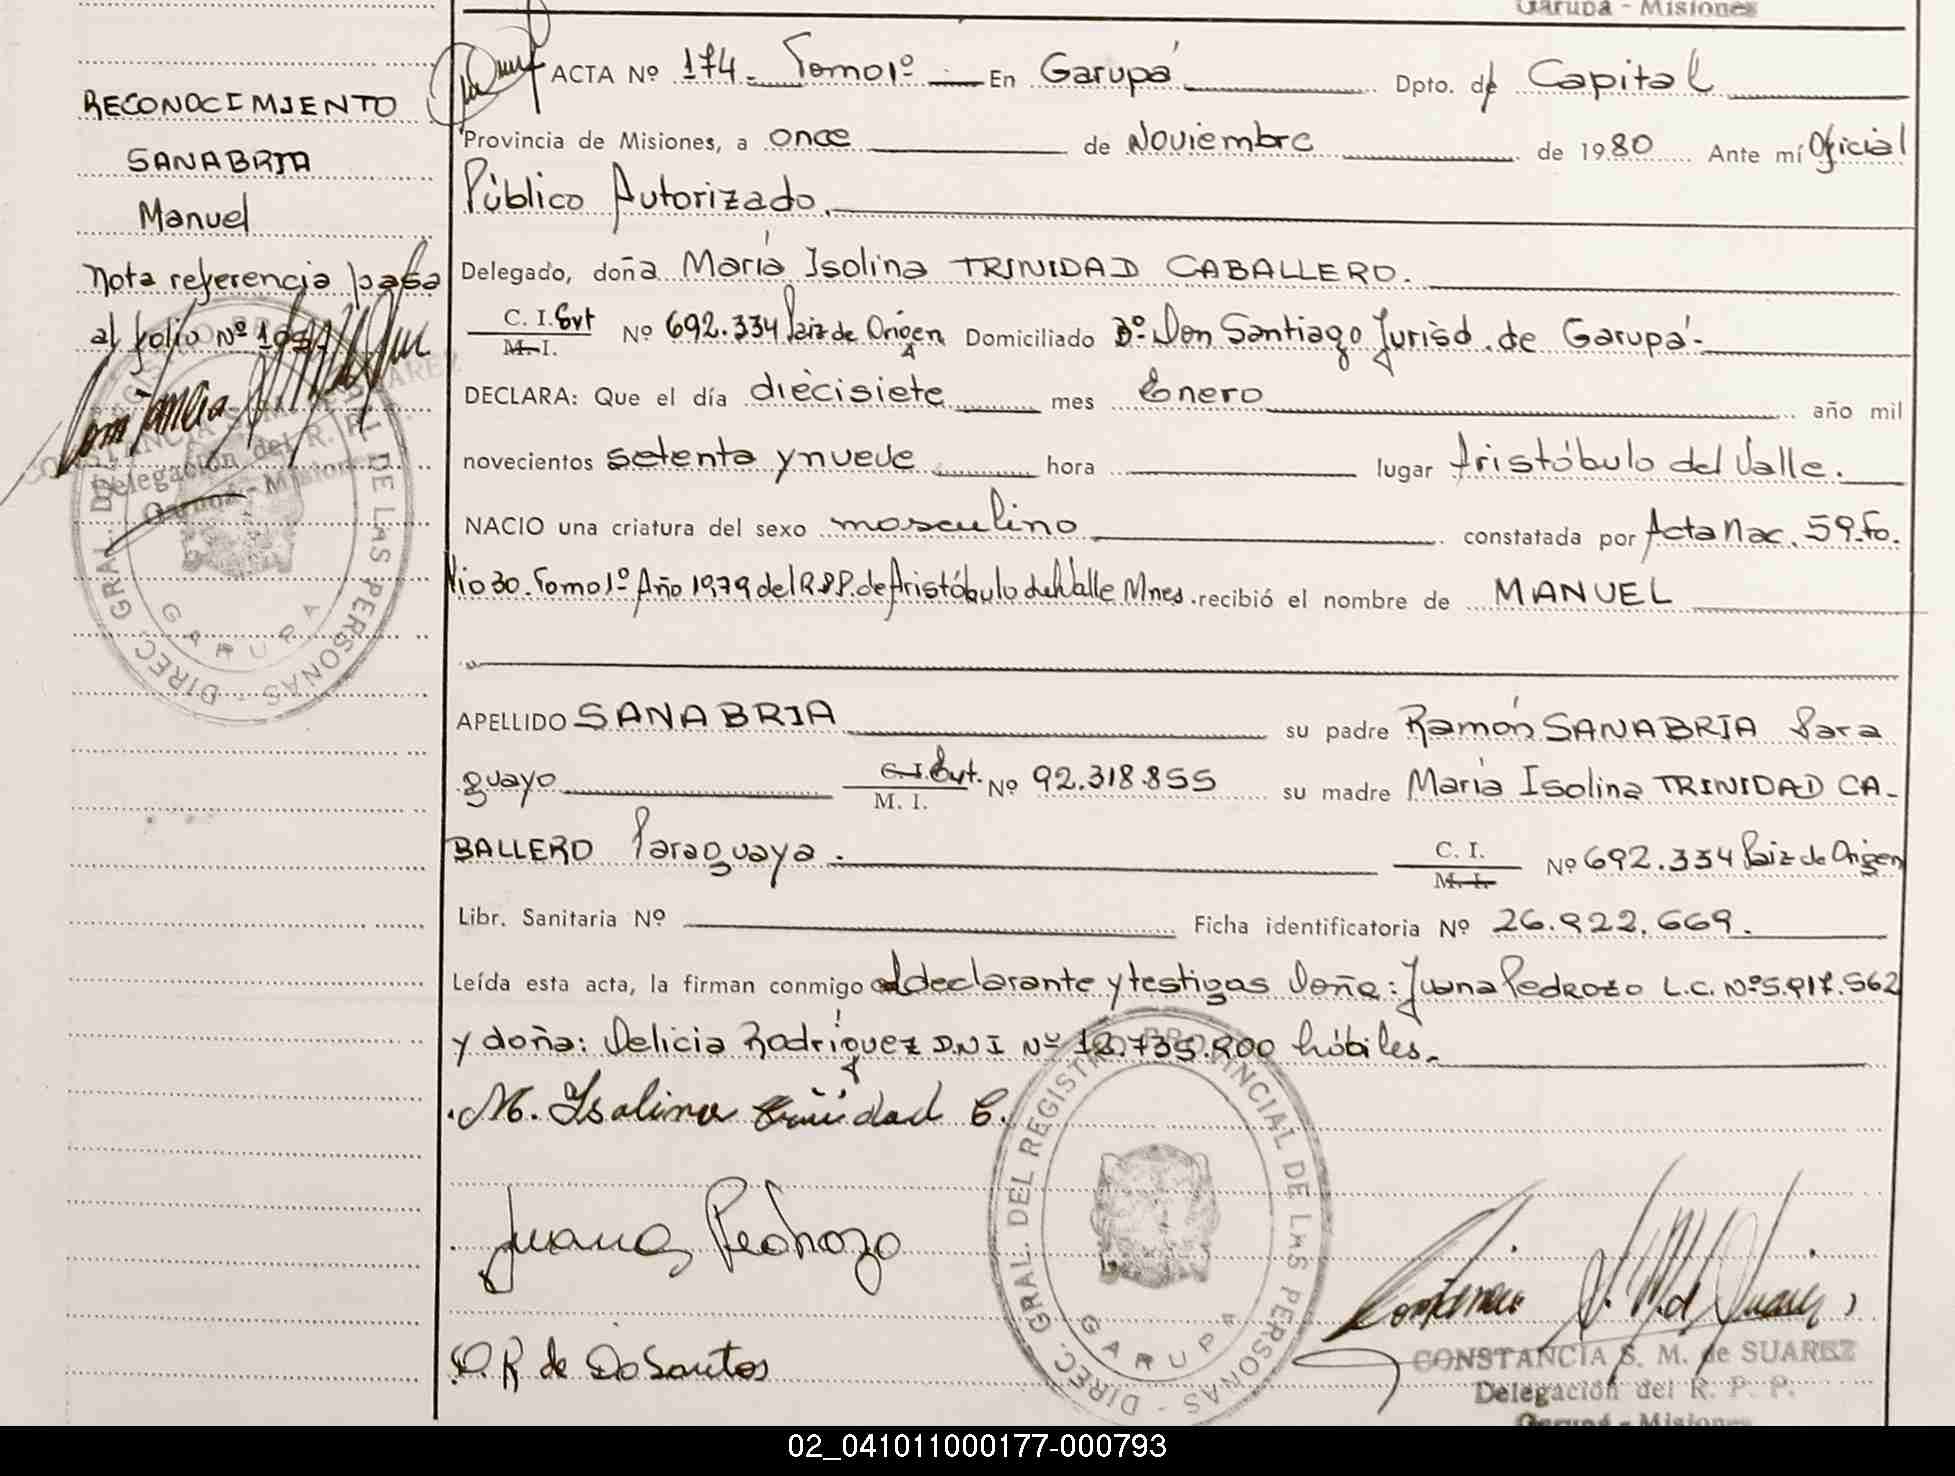 Garupá - Misiones
ACTA Nº 174.- Tomo 1º En Garupá Dpto. de Capital
RECONOCIMIENTO
Provincia de Misiones, a once de Noviembre de 1980 Ante mí Oficial
SANABRIA
Público Autorizado.
Manuel
Nota referencia pasa
al folio Nº
Delegado, doña María Isolina TRINIDAD CABALLERO.
C. I. Ext Nº 692.334 Paiz de Origen Domiciliado Bº. Don Santiago Jurisd. de Garupá.-
M. I.
DECLARA: Que el día diecisiete mes Enero año mil
novecientos setenta y nueve hora lugar Aristóbulo del Valle.
NACIO una criatura del sexo masculino constatada por Acta Nac. 59. Fo.
lio 30. Tomo 1º Año 1979 del R.P.P. de Aristóbulo del Valle Mnes. recibió el nombre de MANUEL
APELLIDO SANABRIA su padre Ramón SANABRIA Para
guayo C. I. Ext. Nº 92.318.855 su madre María Isolina TRINIDAD CA-
M. I.
BALLERO Paraguaya. C. I. Nº 692.334 Paiz de Origen
M. I.
Libr. Sanitaria Nº Ficha identificatoria Nº 26.922.669.
Leída esta acta, la firman conmigo declarante y testigas Doña: Juana Pedrozo L.C. Nº 5.917.562
y doña: Delicia Rodríguez D.N.I Nº 12.735.900 hábiles.
M. Isolina Trinidad C.
Juana Pedrozo
D. R de Do Santos
DIREC. GRAL. DEL REGISTRO PROVINCIAL DE LAS PERSONAS
GARUPA
DIREC. GRAL. DEL REGISTRO PROVINCIAL DE LAS PERSONAS
GARUPA
CONSTANCIA S. M. de SUAREZ
Delegación del R. P. P.
Garupá - Misiones
CONSTANCIA S. M. de SUAREZ
Delegación del R. P. P.
Garupá - Misiones
02_041011000177-000793